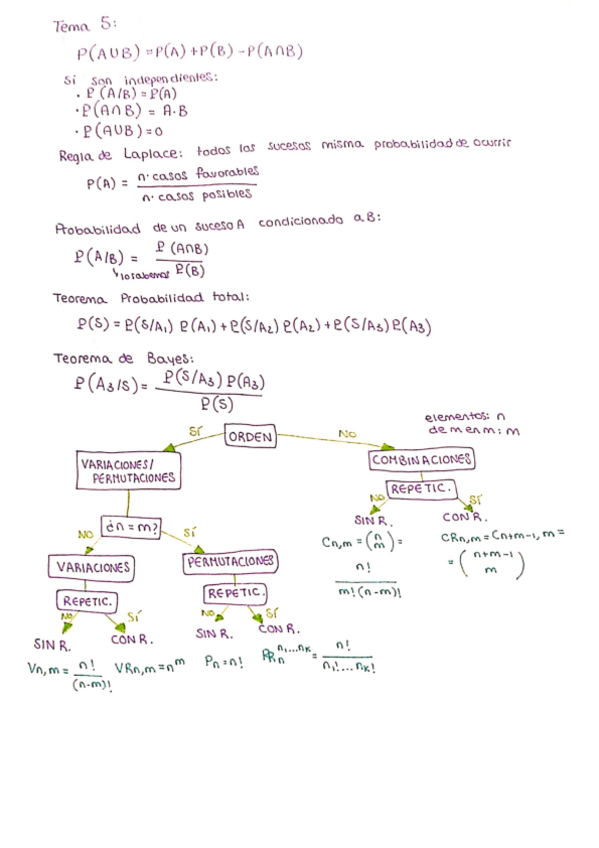 Tema 5:
P(A∪B) = P(A) + P(B) - P(A∩B)
Si son independientes:
· P(A/B) = P(A)
· P(A∩B) = A·B
· P(A∪B) = 0
Regla de Laplace: todos los sucesos misma probabilidad de ocurrir
P(A) = nº casos favorables / nº casos posibles
Probabilidad de un suceso A condicionado a B:
P(A/B) = P(A∩B) / P(B)
lo sabemos
Teorema Probabilidad total:
P(S) = P(S/A₁) P(A₁) + P(S/A₂) P(A₂) + P(S/A₃) P(A₃)
Teorema de Bayes:
P(A₃/S) = P(S/A₃) P(A₃) / P(S)
elementos: n
de m en m: m
SÍ ORDEN NO
VARIACIONES/
PERMUTACIONES
COMBINACIONES
REPETIC.
NO SÍ
SIN R. CON R.
Cn,m = (n m) =
n! / m!(n-m)!
CRn,m = Cn+m-1,m =
= (n+m-1 m)
¿n=m?
NO SÍ
VARIACIONES PERMUTACIONES
REPETIC. REPETIC.
NO SÍ NO SÍ
SIN R. CON R. SIN R. CON R.
Vn,m = n! / (n-m)! VRn,m = nᵐ Pn = n! PRn n₁...nₖ = n! / n₁!...nₖ!